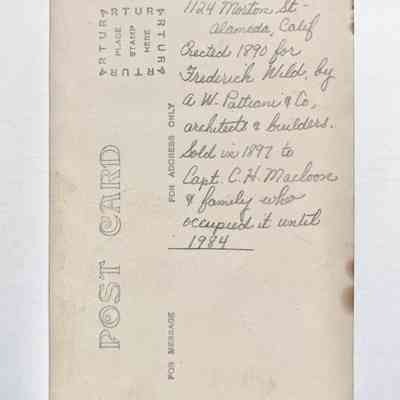 1124 Morton St-
Alameda, Calif
Erected 1890 for
Frederick Wild, by
A. W. Pattiani & Co,
architects & builders.
Sold in 1897 to
Capt. C. H. Macloon
& family who
occupied it until
1984
POST CARD
ARTURA
ARTURA
ARTURA
ARTURA
PLACE
STAMP
HERE
FOR ADDRESS ONLY
FOR MESSAGE